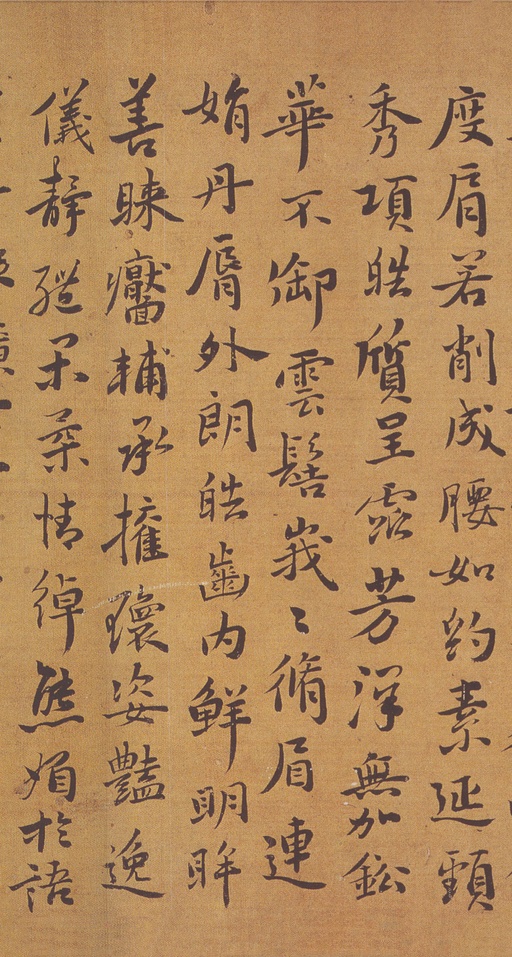 度肩若削成腰如約素延頸
秀項皓質呈露芳澤無加鉛
華不御雲髻峩〻脩眉連
娟丹脣外朗皓齒內鮮明眸
善睞靨輔承權瓌姿豔逸
儀靜體閑柔情綽態媚於語